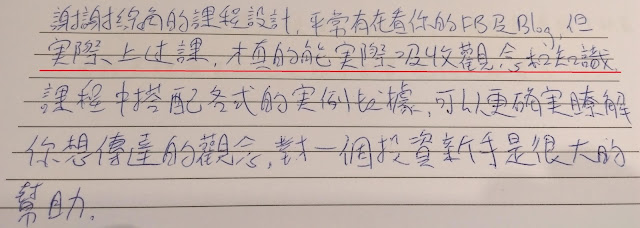 謝謝綠角的課程設計，平常有在看你的FB及Blog，但
實際上过課，才真的能實際吸收觀念和知識。
課程中搭配各式的實例比據，可以更確实瞭解
你想傳達的觀念，對一個投資新手是很大的
幫助。